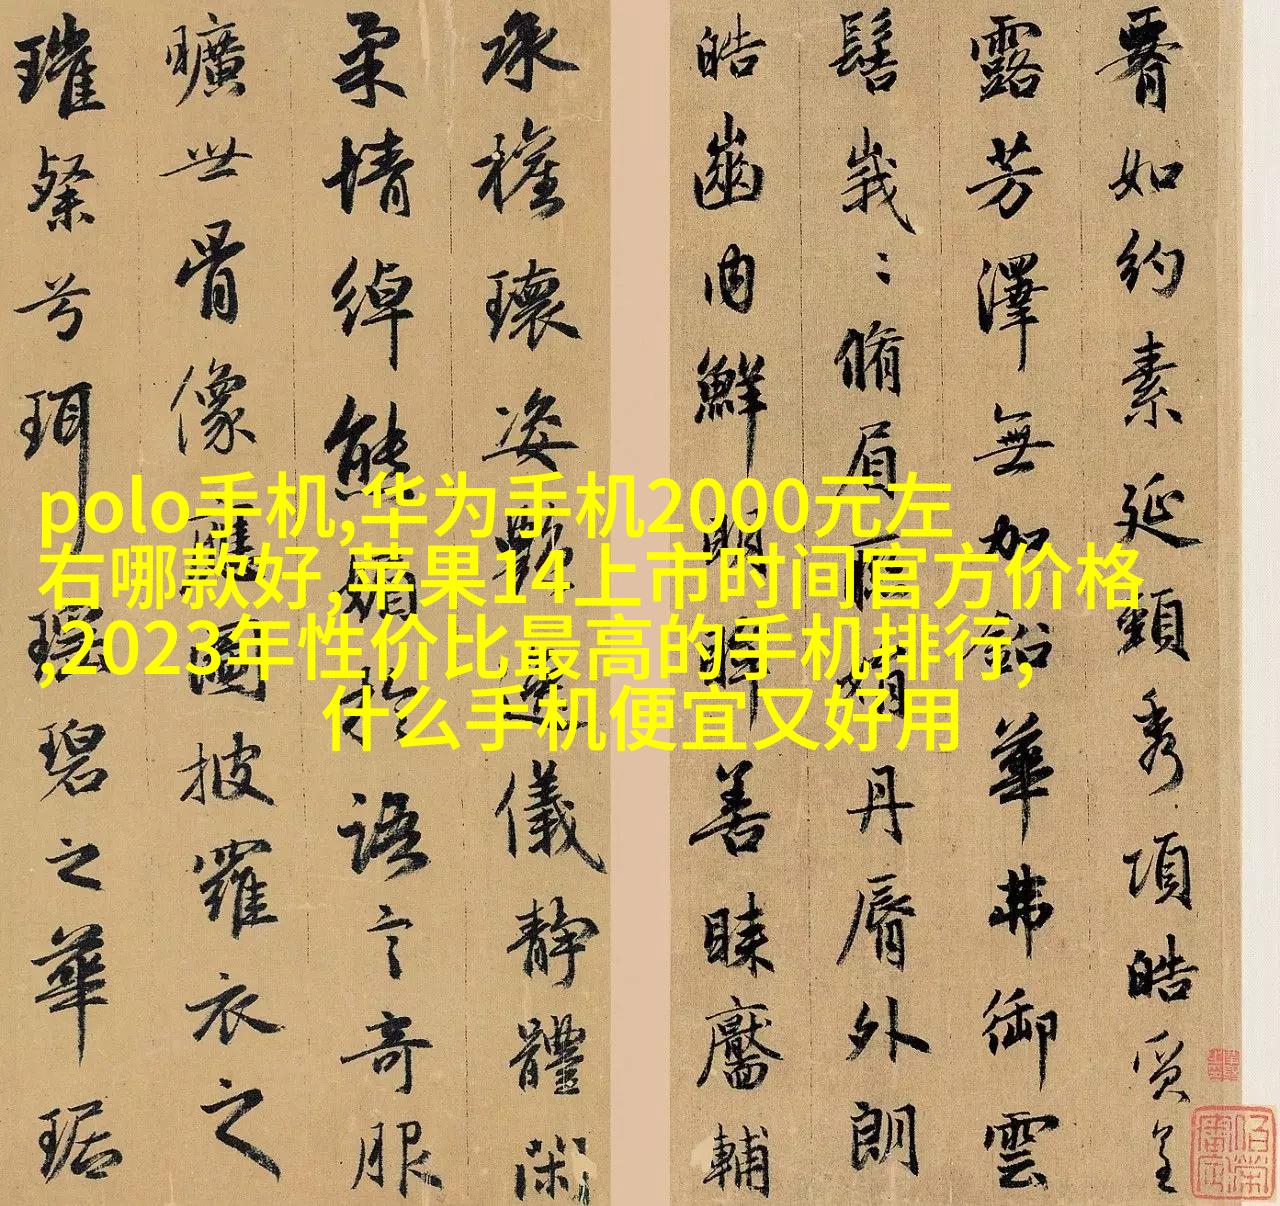 腰如約素延頸秀項皓質呈
露芳澤無加鉛華弗御雲
髻峩〻脩眉聯娟丹脣外朗
皓齒内鮮明眸善睞靨輔
承權瓌姿豔逸儀靜體閑
柔情綽態媚於語言奇服
曠世骨像應圖披羅衣之
璀粲兮珥瑤碧之華琚
polo手机,华为手机2000元左
右哪款好,苹果14上市时间官方价格
,2023年性价比最高的手机排行,
什么手机便宜又好用